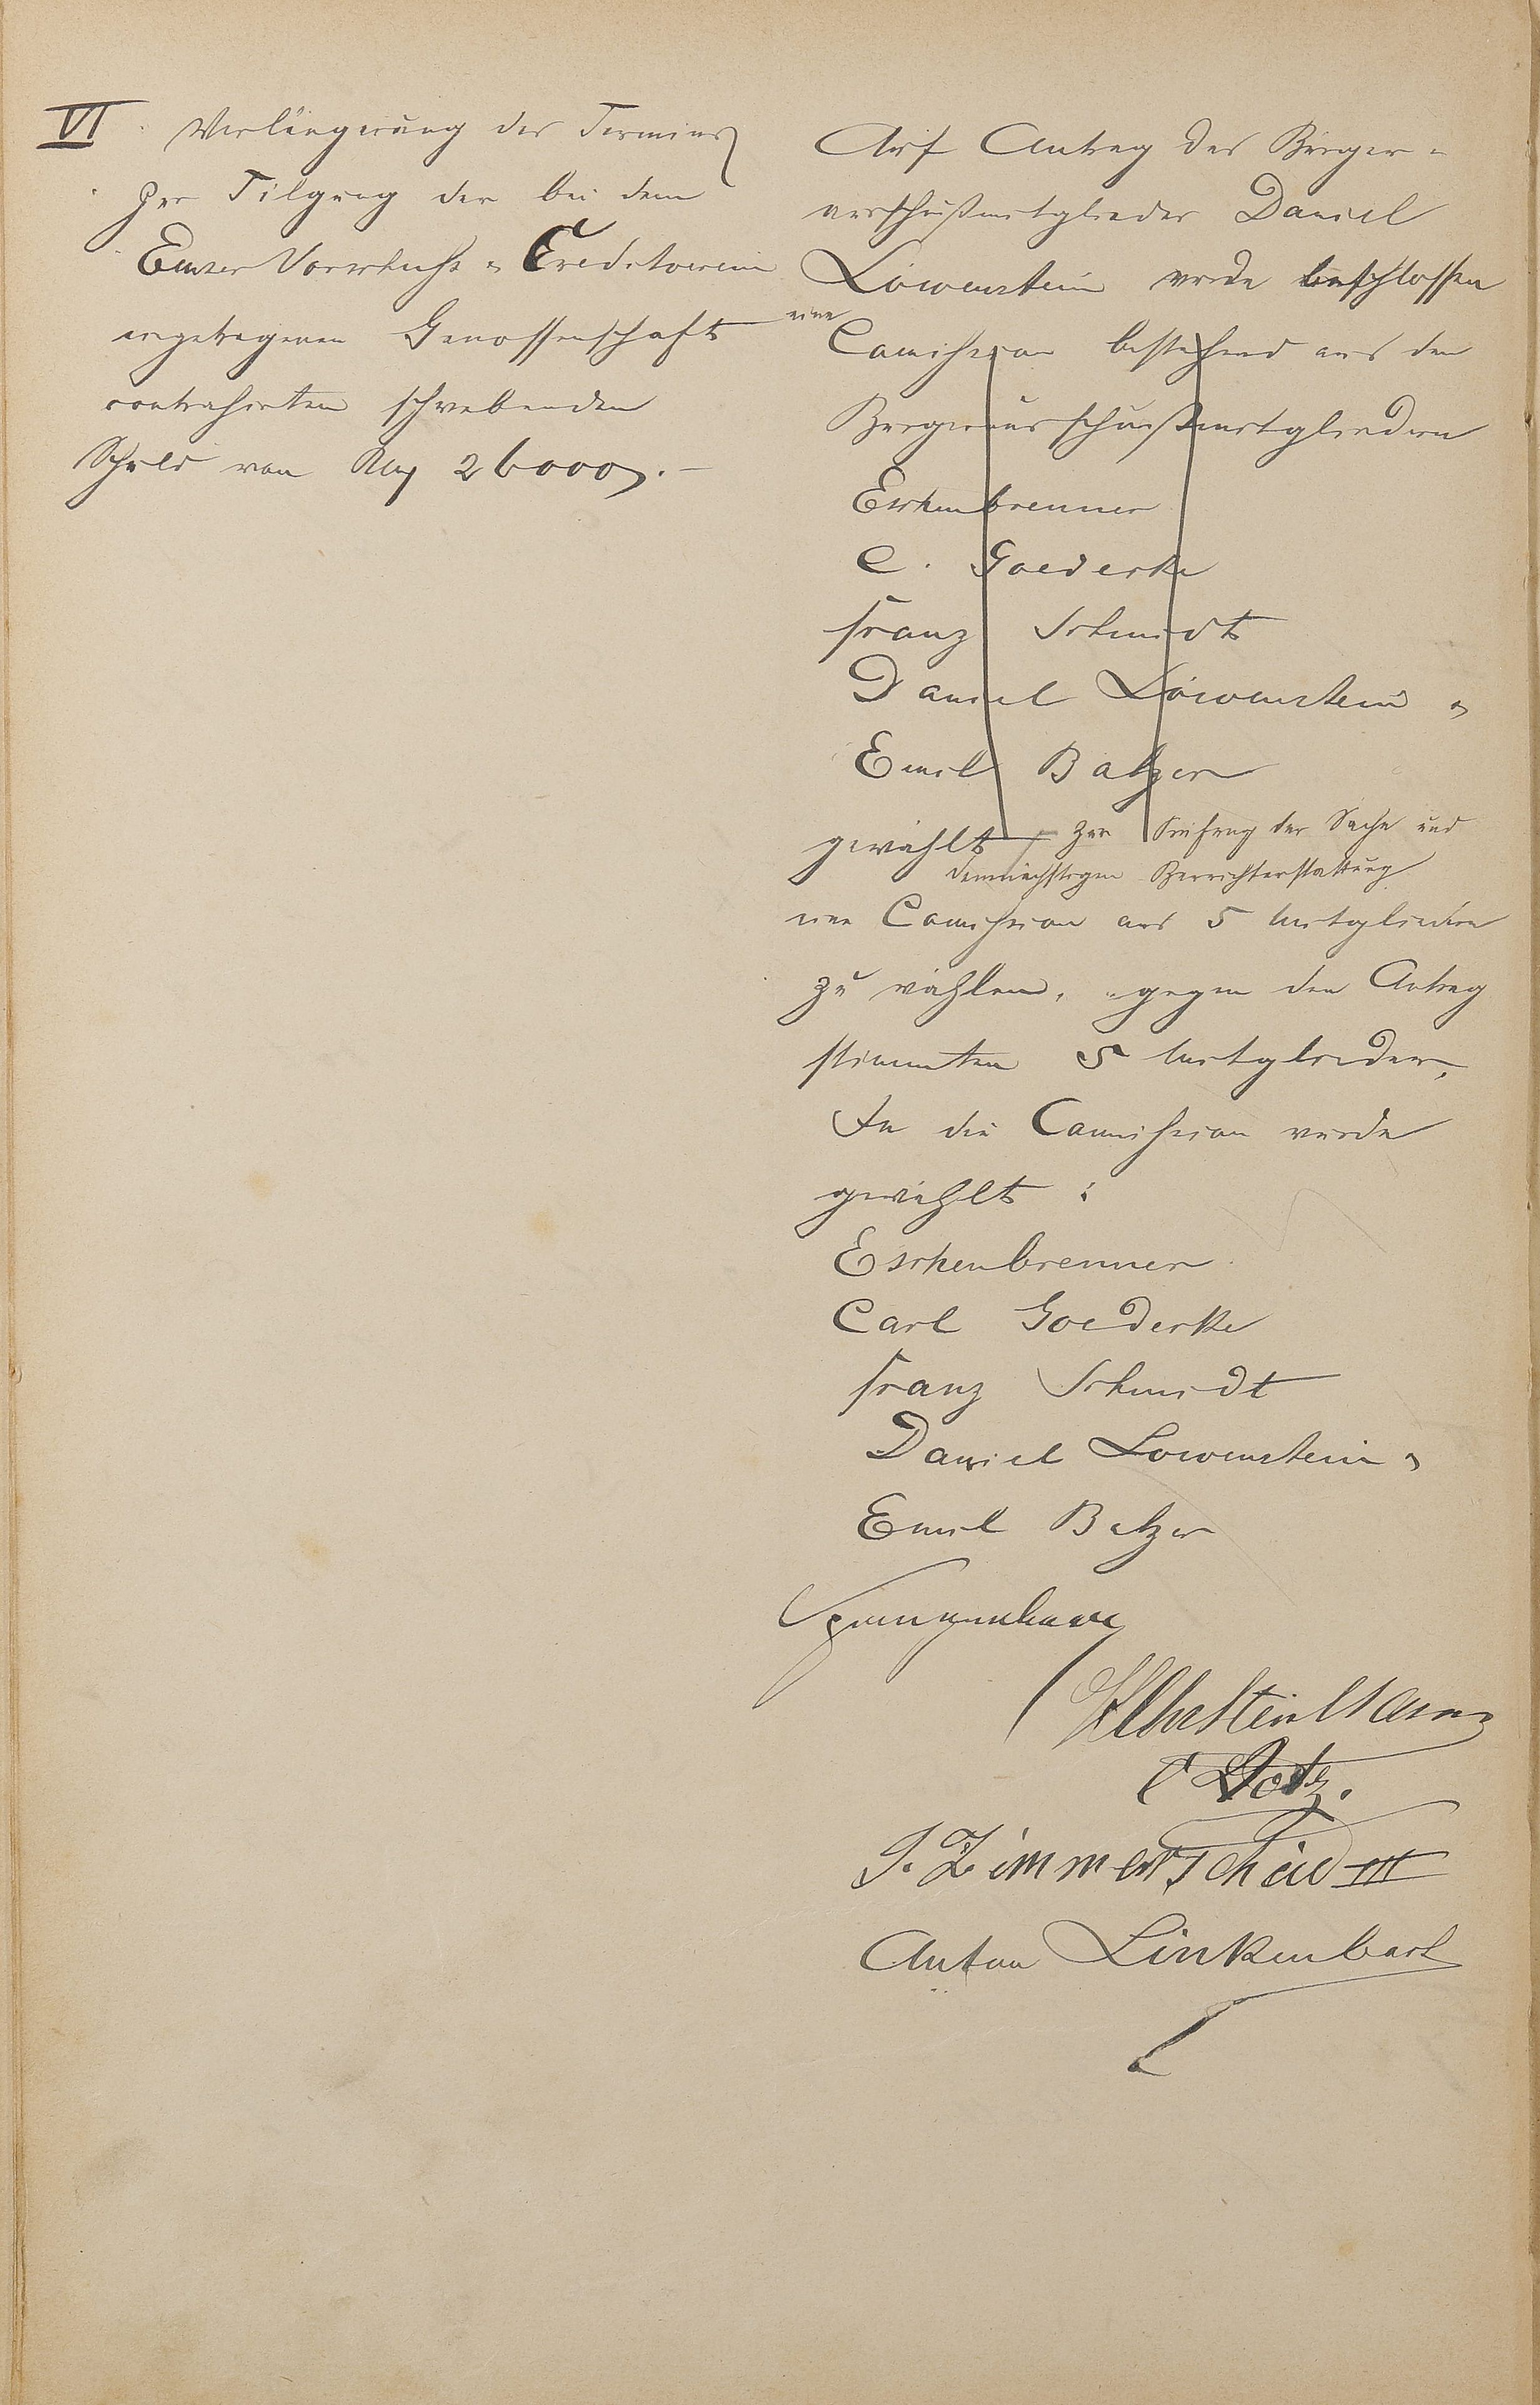 VI. Verlängerung des Termins
zur Tilgung der bei dem
Emser Vorschuss u. Creditverein
eingetragenen Genossenschaft
contrahirten schwebenden
Schuld von Rm 26000.-
Auf Antrag des Bürger-
ausschußmitgliedes Daniel
Löwenstein wurde beschlossen
eine
Commission bestehend aus den
Bürgerausschußmitgliedern
Eschenbrenner
C. Goedecke
Franz Schmidt
Daniel Löwenstein u
Emil Balzer
gewählt zur Prüfung der Sache und
demnächstigen Berichterstattung
eine Commission aus 5 Mitgliedern
zu wählen, gegen den Antrag
stimmten 5 Mitglieder,
In die Commission wurde
gewählt:
Eschenbrenner
Carl Goedecke
Franz Schmidt
Daniel Löwenstein u
Emil Balzer
Spangenberg
C Götz.
J. Zimmerscheid III
Anton Linkenbach